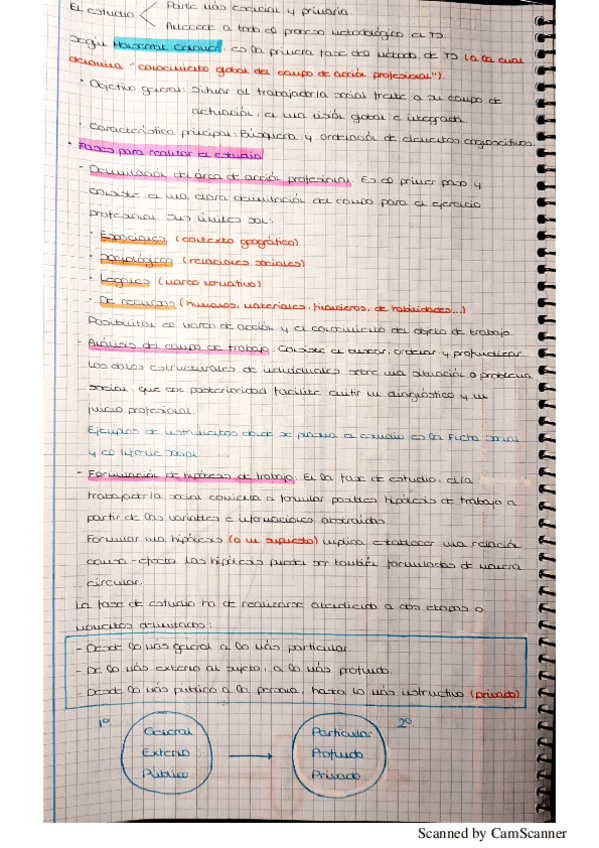 El estudio
Parte más esencial y primaria
Antecede a todo el proceso metodológico en TS.
Según , es la primera fase del método de TS (a la cual
denomina "conocimiento global del campo de acción profesional").
· Objetivo general: Situar al trabajador/a social frente a su campo de
actuación, en una visión global e integrada.
· Característica principal: Búsqueda y ordenación de elementos cognoscitivos.
· Fases para realizar el estudio
- Delimitación del área de acción profesional. Es el primer paso y
consiste en una clara delimitación del campo para el ejercicio
profesional. Sus límites son:
· Espaciales (contexto geográfico)
· Sociológicos (relaciones sociales)
· Legales (marco normativo)
· De recursos (humanos, materiales, financieros, de habilidades...)
Posibilitan el marco de acción y el conocimiento del objeto de trabajo.
- Análisis del campo de trabajo. Consiste en buscar, ordenar y profundizar
los datos estructurales de individuales sobre una situación o problema
social, que con posterioridad facilite emitir un diagnóstico y un
juicio profesional.
Ejemplos de instrumentos donde se plasma el estudio es la Ficha social
y el informe social
- Formulación de hipótesis de trabajo. En la fase de estudio, el/la
trabajador/a social comienza a formular posibles hipótesis de trabajo a
partir de las variables e informaciones observadas.
Formular una hipótesis (o un supuesto) implica establecer una relación
causa-efecto. Las hipótesis pueden ser también formuladas de manera
circular.
La fase de estudio ha de realizarse atendiendo a dos etapas o
momentos delimitados:
- Desde lo más general a lo más particular.
- De lo más externo al sujeto, a lo más profundo.
- Desde lo más público a la persona, hasta lo más instructivo (privado)
1º
General
Externo
Público
2º
Particular
Profundo
Privado
Scanned by CamScanner